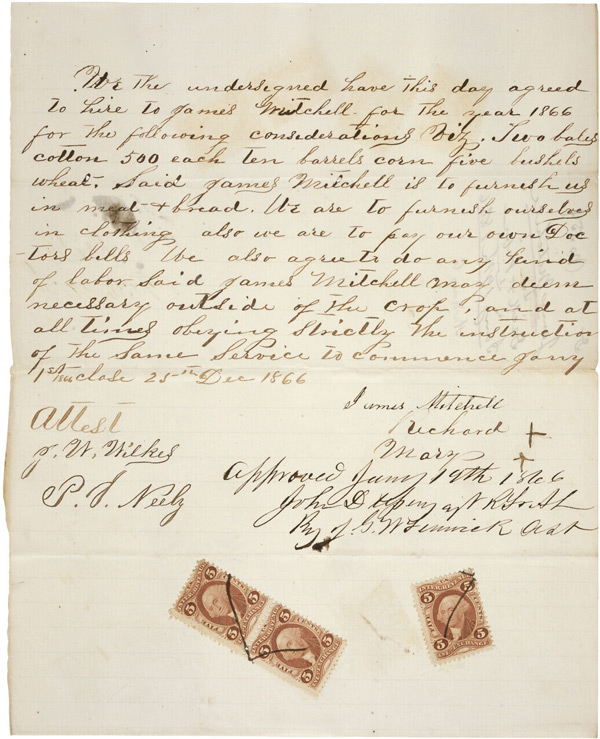 We the undersigned have this day agreed
to hire to James Mitchell for the year 1866
for the following considerations Viz. Two bales
cotton 500 each ten barrels corn five bushels
wheat. Said James Mitchell is to furnish us
in meat + bread. We are to furnish ourselves
in clothing also we are to pay our own Doc
tors bills We also agree to do any kind
of labor Said James Mitchell may deem
necessary outside of the crop, and at
all times obeying strictly the instruction
of the Same Service to commence Jany
1st close 25th Dec 1866
Attest
J. W. Wilkes
P. J. Neely
James Mitchell
Richard +
Mary +
Approved Jany 19th 1866
John D
By G. W. Fenwick
5 5 5 5
INTER. EXCHANGE
5 5 5 5
5 5
5 5